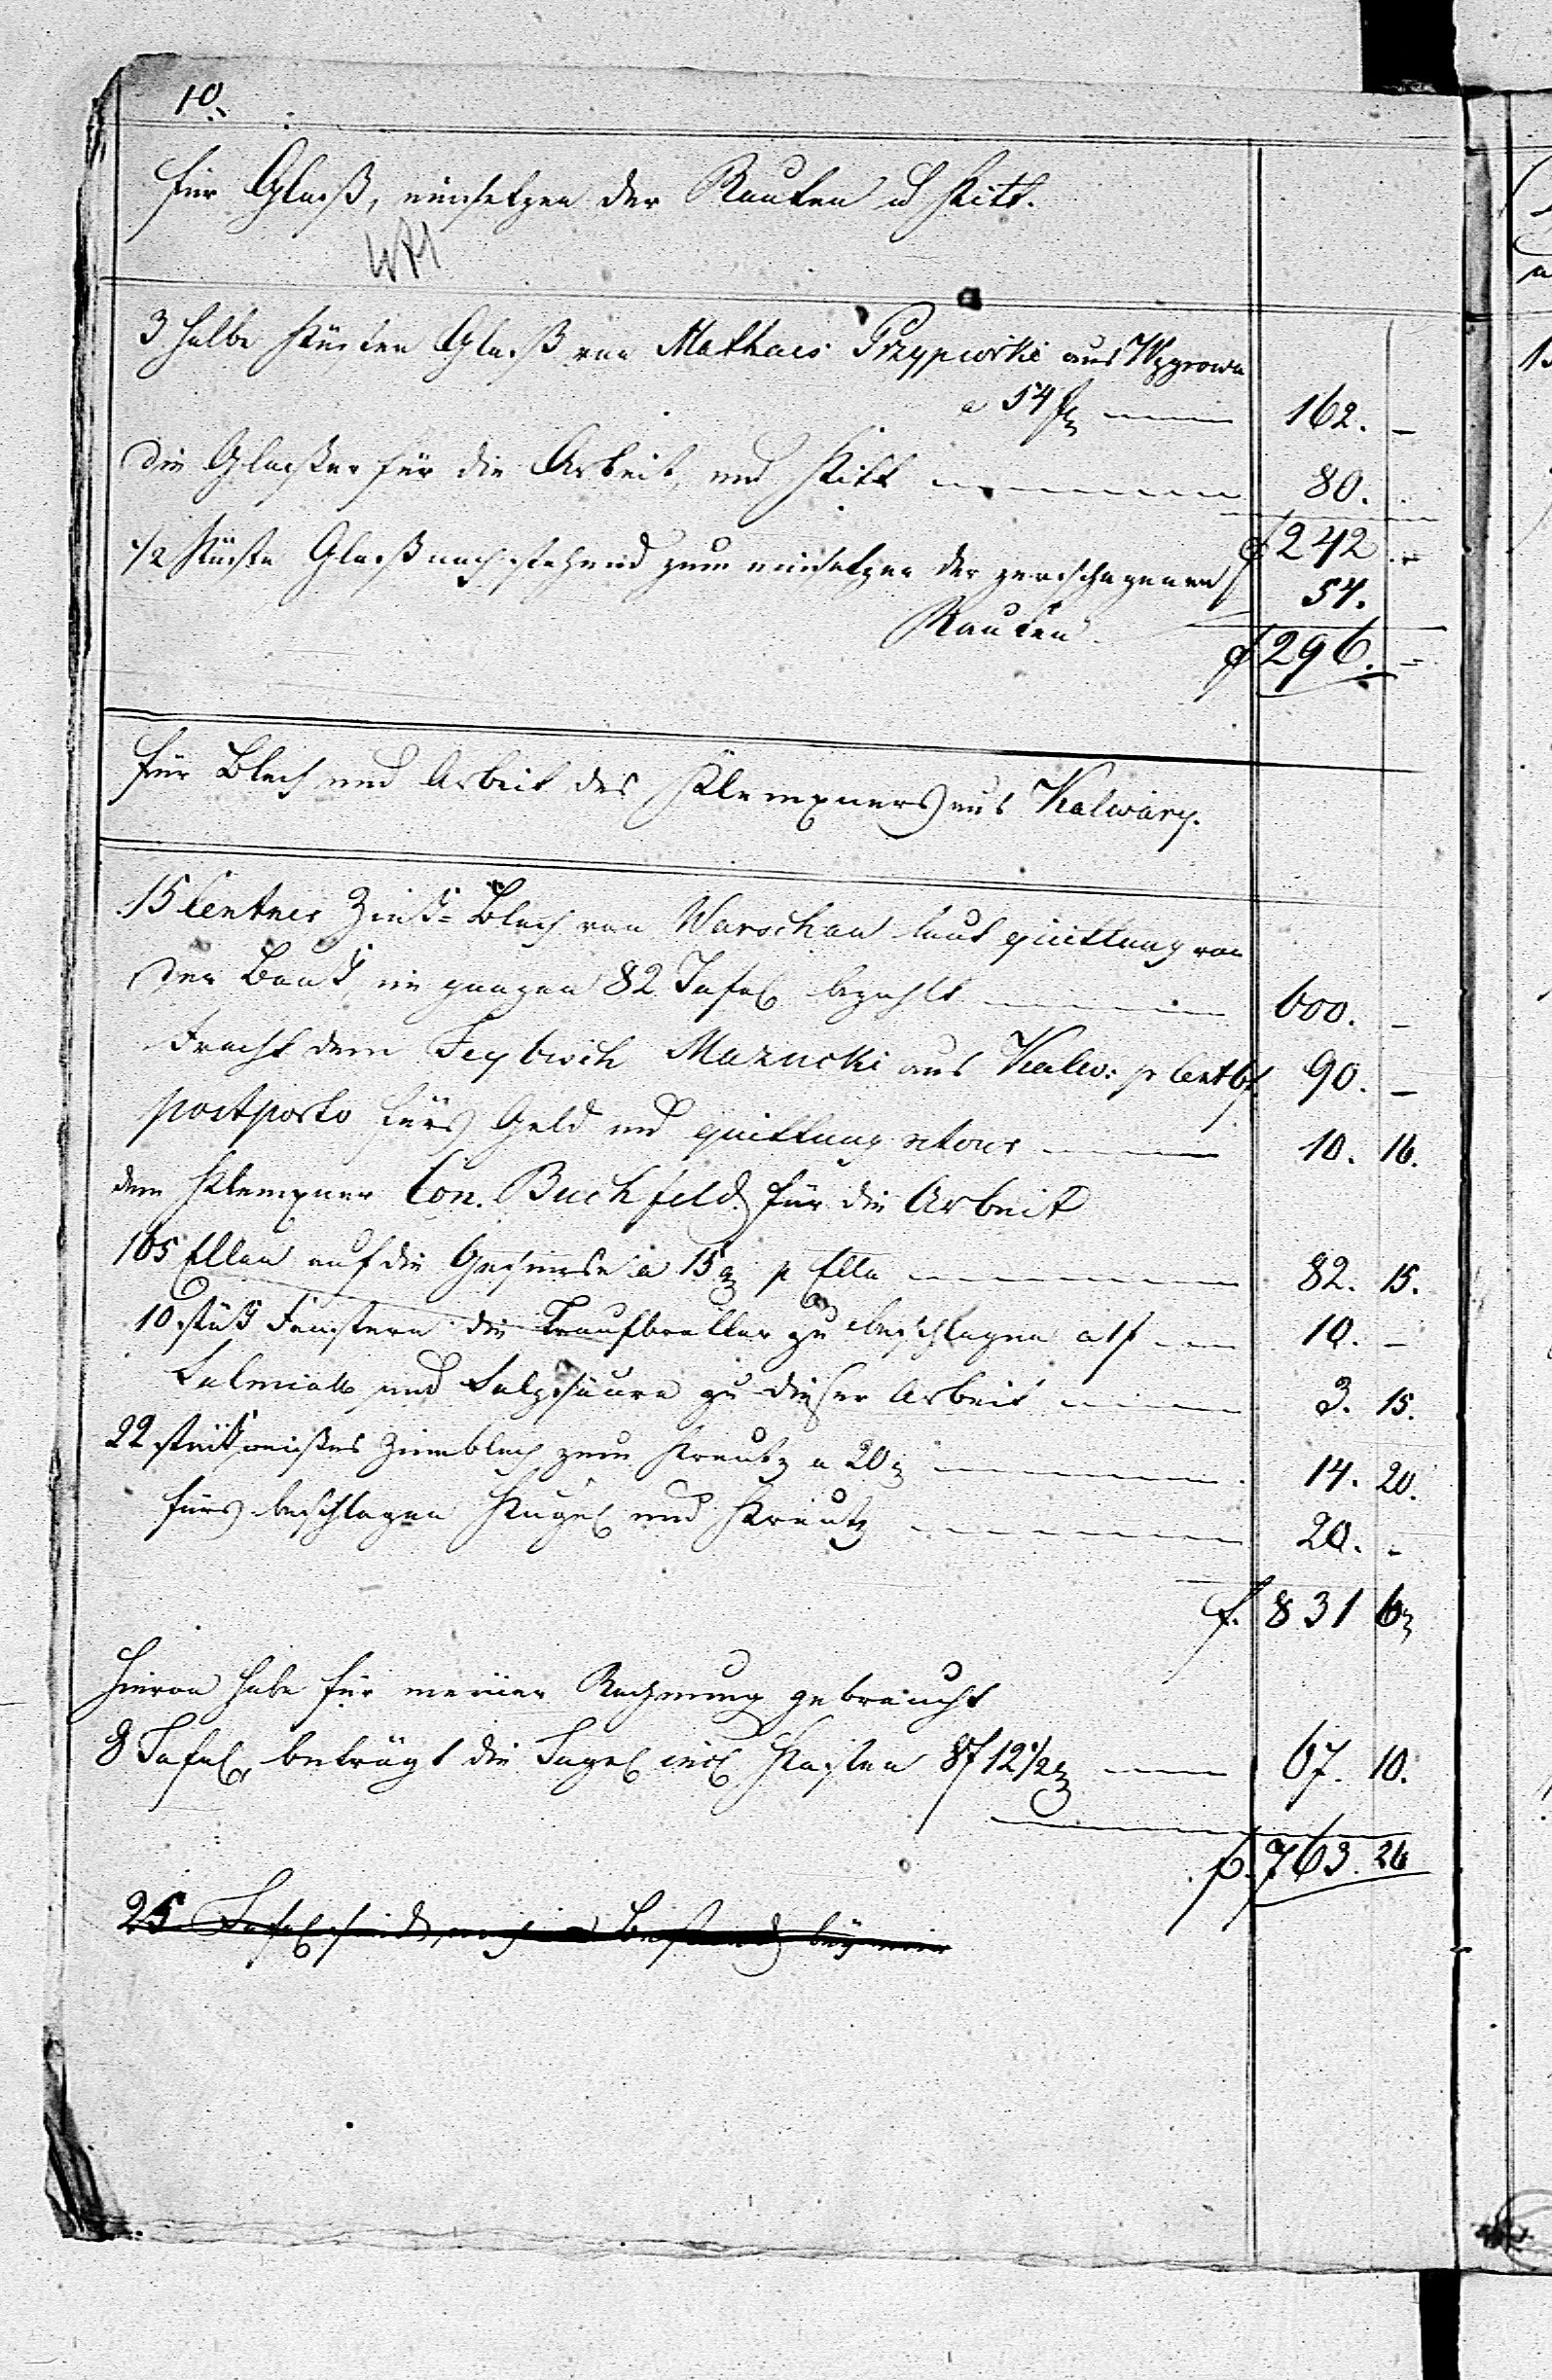 10.
für Glaß, einsetzen der Rauten u Kitt.
3 halbe Kisten Glaß von Mathaes Przypiorski aus
a 54 f 162. –
die Glaßer für die Arbeit, und Kitt 80.
f 242 –
1/2 Kiste Glaß nachstehend zum einsetzen der zerschlagenen 54.
Rauten
f 296. –
für Blech und Arbeit des Klempners aus Kalwary.
15 Centner Zink-Blech von Warschau laut quittung von
der Bank, im ganzen 82 Tafel bezahlt 600. –
Fracht dem Feybisch Mazucki aus Kalw: p Cent 6f. 90. –
Postporto fürs Geld und quittung retour 10. 16.
dem Klempner Con. Buchfeld für die Arbeit
165 Ellen auf die Gesimse a 15 g p Elle 82. 15.
10 stük Fenstern die zu beschlagen a 1f 10. –
Salmiak und Salzsäure zu dießer Arbeit 3. 15.
22 stük weißes Zinnblech zum Kreutz a 20 g 14. 20.
fürs beschlagen Kugel und Kreutz 20. -
f. 831 6
Hievon habe für meiner Rechnung gebraucht
8 Tafel, beträgt die Tagel incl Kosten 8f 12 1/2 g 67. 10.
f. 763. 26
25 Tafel sind noch Bestand bey mir